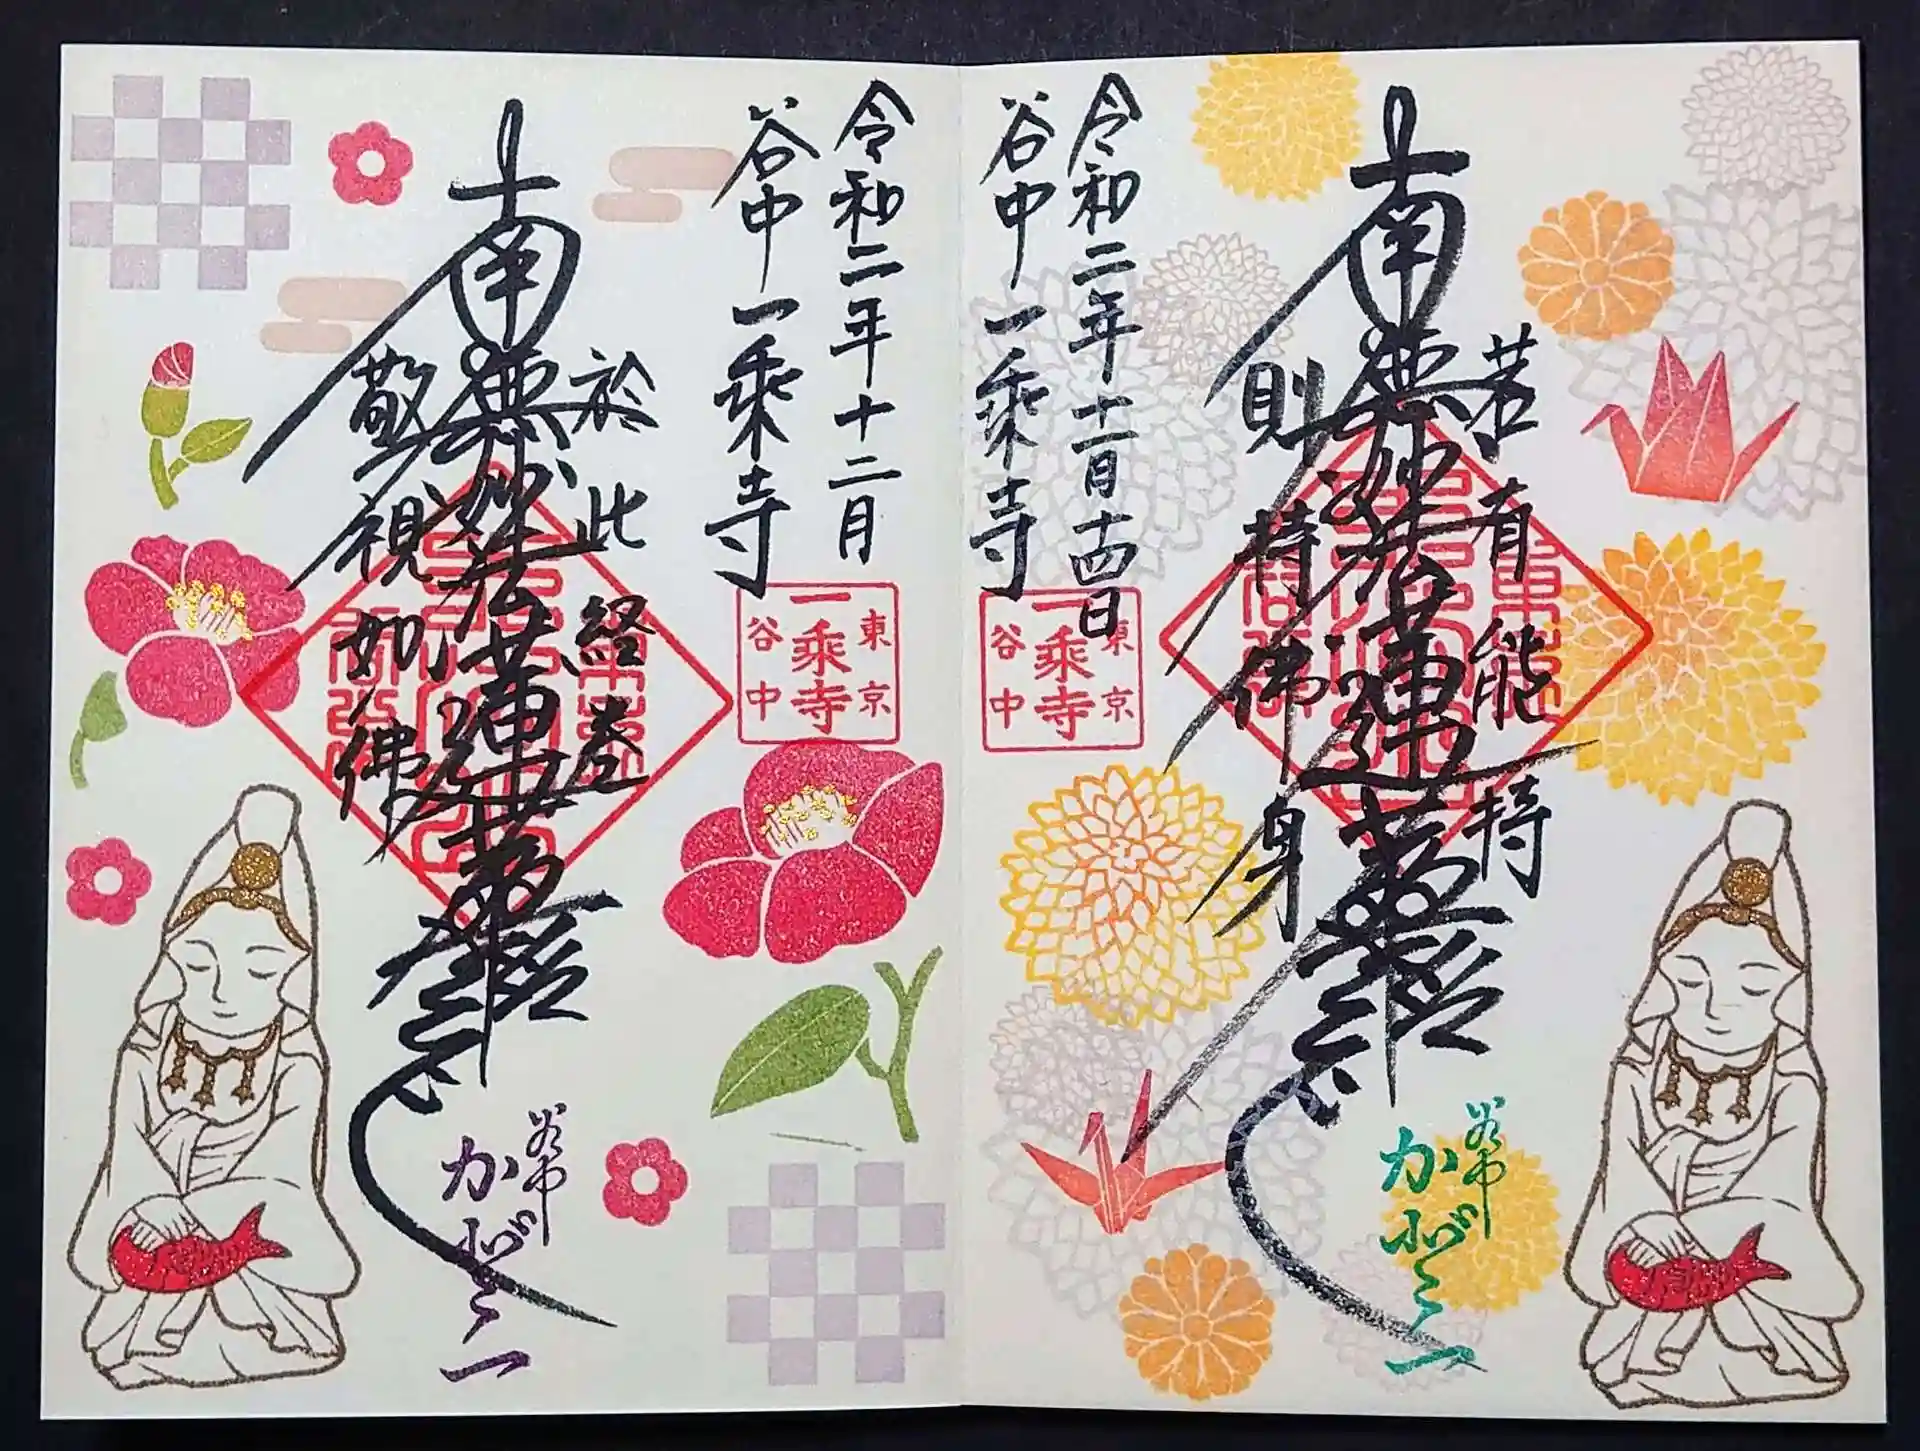 南無妙法蓮華経
若有能持
則持佛身
令和二年十一月十四日
谷中一乗寺
東京
一乗寺
谷中
かんのん
南無妙法蓮華経
於此経巻
敬視如佛
令和二年十二月
谷中一乗寺
東京
一乗寺
谷中